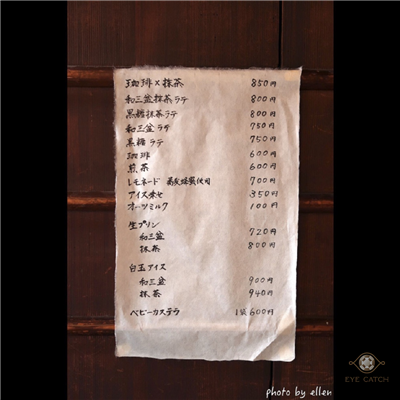 珈琲×抹茶 850円
和三盆抹茶ラテ 800円
黒糖抹茶ラテ 800円
和三盆ラテ 750円
黒糖ラテ 750円
珈琲 600円
煎茶 600円
レモネード 蕎麦蜂蜜使用 700円
アイス最中 350円
オーツミルク 100円
生プリン
和三盆 720円
抹茶 800円
白玉アイス
和三盆 900円
抹茶 940円
ベビーカステラ 1袋600円
photo by ellen
EYE CATCH